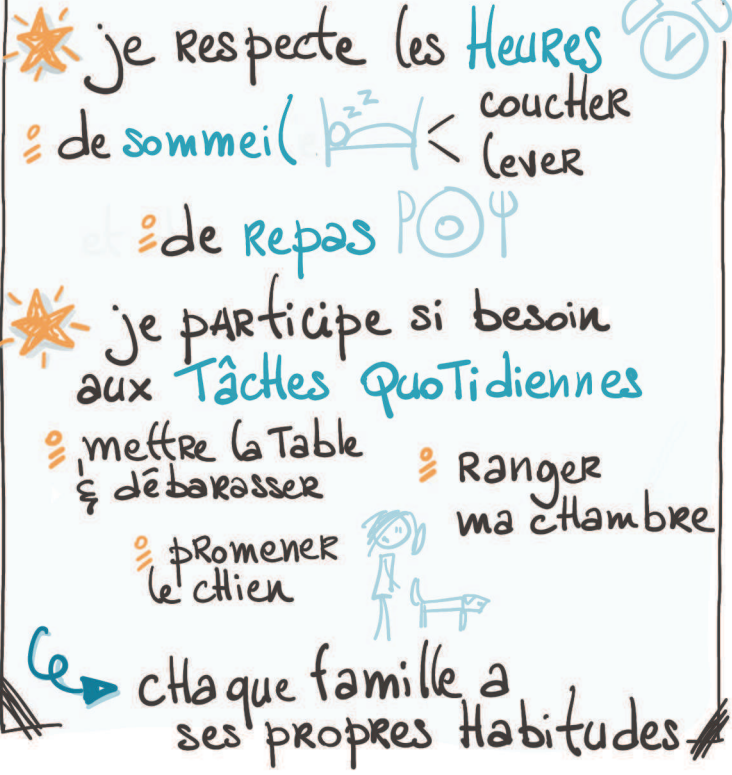 je respecte les Heures
de sommeil < coucher
lever
de repas
je participe si besoin
aux Tâches Quotidiennes
mettre la Table
& débarasser
Ranger
ma chambre
promener
le chien
chaque famille a
ses propres Habitudes